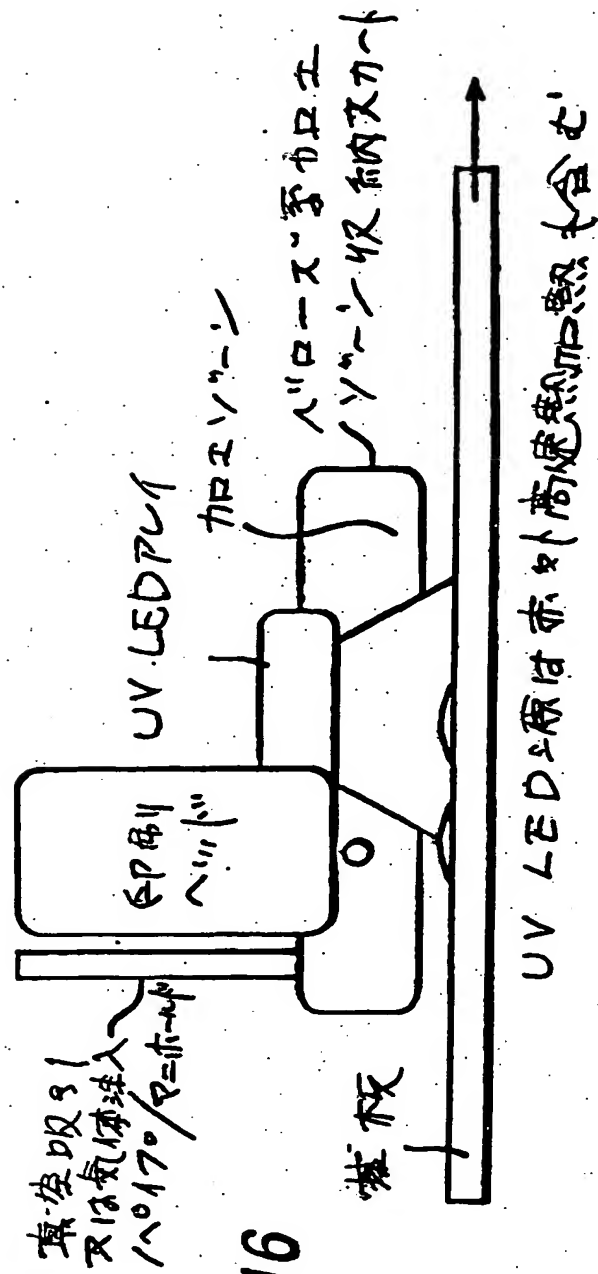 真空吸引
又は気体注入
パイプ/マニホールド
印刷り
ヘッド
UV LEDアレイ
加工ゾーン
ベローズ等加工
ゾーン収納スカート
基板
UV LED二源は赤外高速熱加熱も含む
16